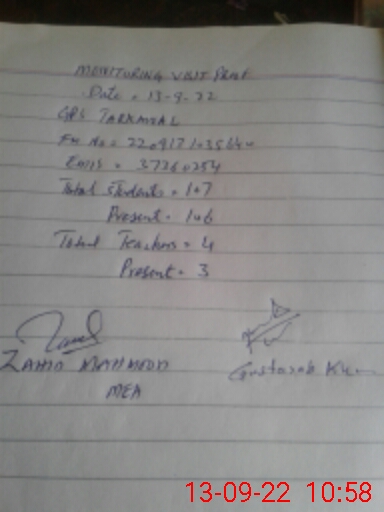 MONITORING VISIT PROF
Date = 13-9-22
GPS TARKAMAL
EMIS = 37260254
Total Students = 107
Present = 106
Total Teachers = 4
Present = 3
ZAHID MAHMOOD
MEA
Gustasab
13-09-22 10:58